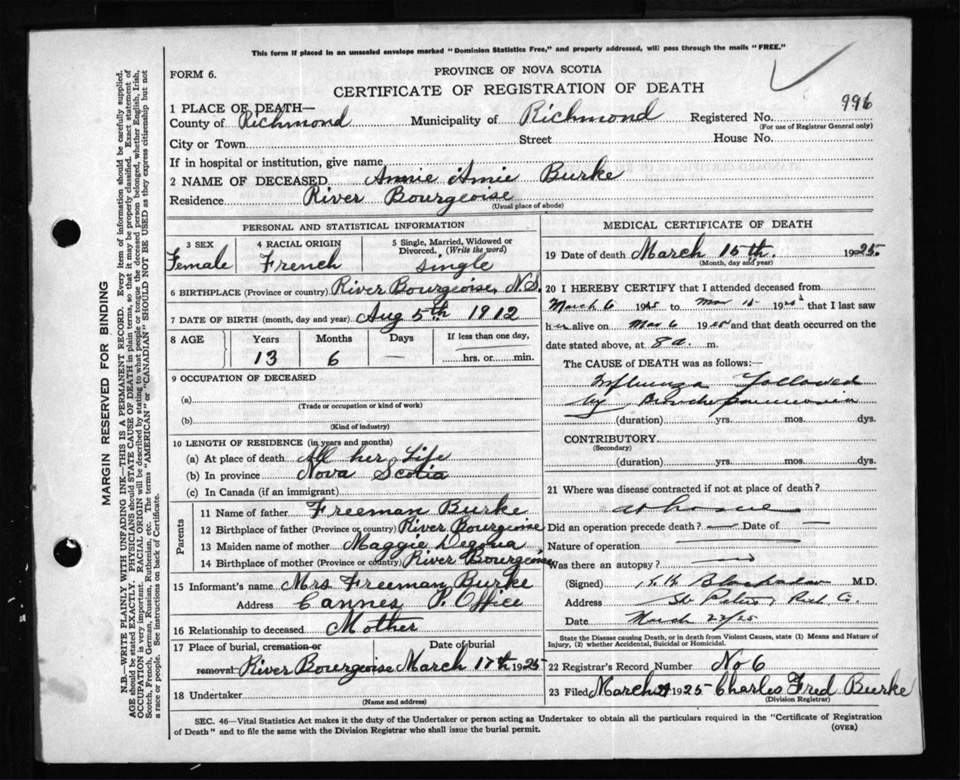 This form if placed in an unsealed envelope marked "Dominion Statistics Free," and properly addressed, will pass through the mails "FREE."
FORM 6.
PROVINCE OF NOVA SCOTIA
CERTIFICATE OF REGISTRATION OF DEATH
996
1 PLACE OF DEATH—
County of Richmond Municipality of Richmond Registered No.
(For use of Registrar General only)
City or Town Street House No.
If in hospital or institution, give name
2 NAME OF DECEASED Annie Amie Burke
Residence River Bourgeoise
(Usual place of abode)
MARGIN RESERVED FOR BINDING
N.B.—WRITE PLAINLY WITH UNFADING INK—THIS IS A PERMANENT RECORD. Every item of information should be carefully supplied.
AGE should be stated EXACTLY. PHYSICIANS should STATE CAUSE OF DEATH in plain terms, so that it may be properly classified. Exact statement of
OCCUPATION is very important. RACIAL ORIGIN will be described by stating to what people or tongue the deceased person belonged, whether English, Irish,
Scotch, French, German, Russian, Ruthenian, etc. The terms "AMERICAN" or "CANADIAN" SHOULD NOT BE USED as they express citizenship but not
a race or people. See instructions on back of Certificate.
PERSONAL AND STATISTICAL INFORMATION
3 SEX
Female
4 RACIAL ORIGIN
French
5 Single, Married, Widowed or
Divorced. (Write the word)
Single
6 BIRTHPLACE (Province or country) River Bourgeoise, N.S.
7 DATE OF BIRTH (month, day and year) Aug 5th 1912
8 AGE
Years
13
Months
6
Days
—
If less than one day,
hrs. or min.
9 OCCUPATION OF DECEASED
(a)
(Trade or occupation or kind of work)
(b)
(Kind of industry)
10 LENGTH OF RESIDENCE (in years and months)
(a) At place of death All her Life
(b) In province Nova Scotia
(c) In Canada (if an immigrant)
Parents
11 Name of father Freeman Burke
12 Birthplace of father (Province or country) River Bourgeoise
13 Maiden name of mother Maggie
14 Birthplace of mother (Province or country) River Bourgeoise
15 Informant's name Mrs Freeman Burke
Address Cannes P. Office
16 Relationship to deceased Mother
17 Place of burial, cremation or Date of burial
removal River Bourgeoise March 17th 1925
18 Undertaker
(Name and address)
MEDICAL CERTIFICATE OF DEATH
19 Date of death March 15th 1925
(Month, day and year)
20 I HEREBY CERTIFY that I attended deceased from
March 6 1925 to Mar 15 1925 that I last saw
her alive on Mar 6 1925 and that death occurred on the
date stated above, at 8 a. m.
The CAUSE of DEATH was as follows:—
Influenza followed
by Bronchopneumonia
(duration) yrs. mos. dys.
CONTRIBUTORY
(Secondary)
(duration) yrs. mos. dys.
21 Where was disease contracted if not at place of death?
at home
Did an operation precede death? — Date of —
Nature of operation
Was there an autopsy? no
(Signed) M.D.
Address St Peters
Date March 22/25
State the Disease causing Death, or in death from Violent Causes, state (1) Means and Nature of
Injury, (2) whether Accidental, Suicidal or Homicidal.
22 Registrar's Record Number No 6
23 Filed March 1925 Charles Fred Burke
(Division Registrar)
SEC. 46—Vital Statistics Act makes it the duty of the Undertaker or person acting as Undertaker to obtain all the particulars required in the "Certificate of Registration
of Death" and to file the same with the Division Registrar who shall issue the burial permit.
(OVER)